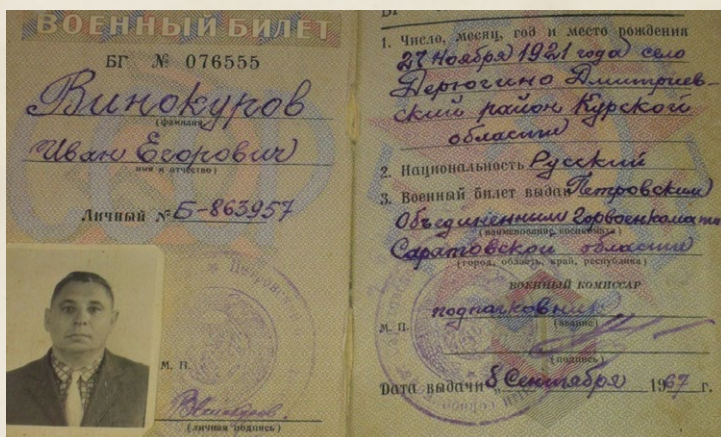 ВОЕННЫЙ БИЛЕТ
БГ № 076555
Винокуров
(фамилия)
Иван Егорович
имя и отчество)
Личный № Б-863957
М. П.
(личная подпись)
1. Число, месяц, год и место рождения
27 Ноября 1921 года село
Дерюгино Дмитриев-
ский район Курской
области
2. Национальность Русский
3. Военный билет выдан Петровским
Объединенным Горвоенкомато
(наименование военкомата)
Саратовской области
(город, область, край, республика)
ВОЕННЫЙ КОМИССАР
подполковник
М. П.
(звание)
(подпись)
Дата выдачи 8 Сентября 1967 г.